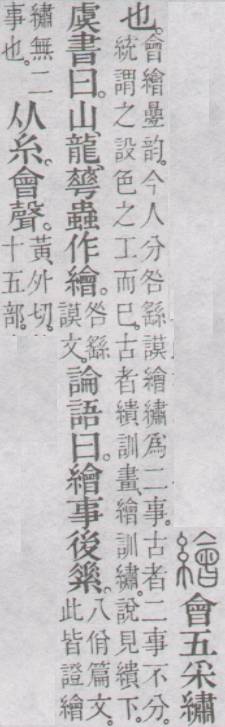 繪 會五采繡
也。會繪疊韵。今人分咎繇謨繪繡爲二事。古者二事不分。統謂之設色之工而巳。古者繢訓畫、繪訓繡。說見繢下。
虞書曰。山、龍、華蟲作繪。咎繇謨文。論語曰。繪事後素。八佾篇文。此皆證繪
繡無二事也。从糸。會聲。黃外切。十五部。